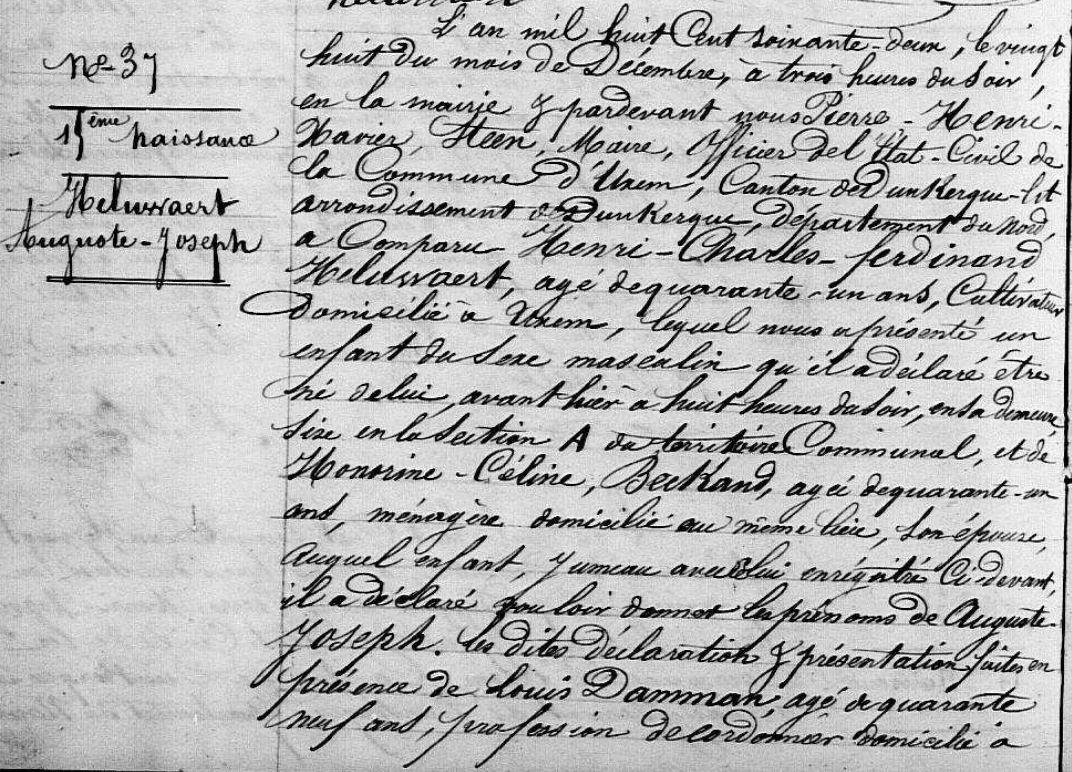 N° 37
15ème naissance
Heluwaert
Auguste-Joseph
L'an mil huit Cent soixante-deux, le vingt
huit du mois de Décembre, à trois heures du Soir,
en la mairie & pardevant nous Pierre-Henri-
Xavier, Steen, Maire, Officier de l'Etat-Civil de
la Commune d'Uxem, Canton de Dunkerque-Est
arrondissement de Dunkerque, département du Nord,
a Comparu Henri-Charles-ferdinand
Heluwaert, agé de quarante-un ans, Cultivateur
domicilié à Uxem, lequel nous a présenté un
enfant du Sexe masculin qu'il a déclaré être
né de lui, avant hier à huit heures du Soir, en Sa demeure,
Sise en la Section A du territoire Communal, et de
Honorine-Céline, Beckand, agée de quarante-un
ans, ménagère domicilié au même lieu, Son épouse,
auquel enfant, Jumeau avec celui enrégistré Ci-devant,
il a déclaré vouloir donner les prénoms de Auguste-
Joseph. les dites déclaration & présentation faites en
présence de Louis Damman, agé de quarante
neuf ans, profession de cordonnier domicilié à